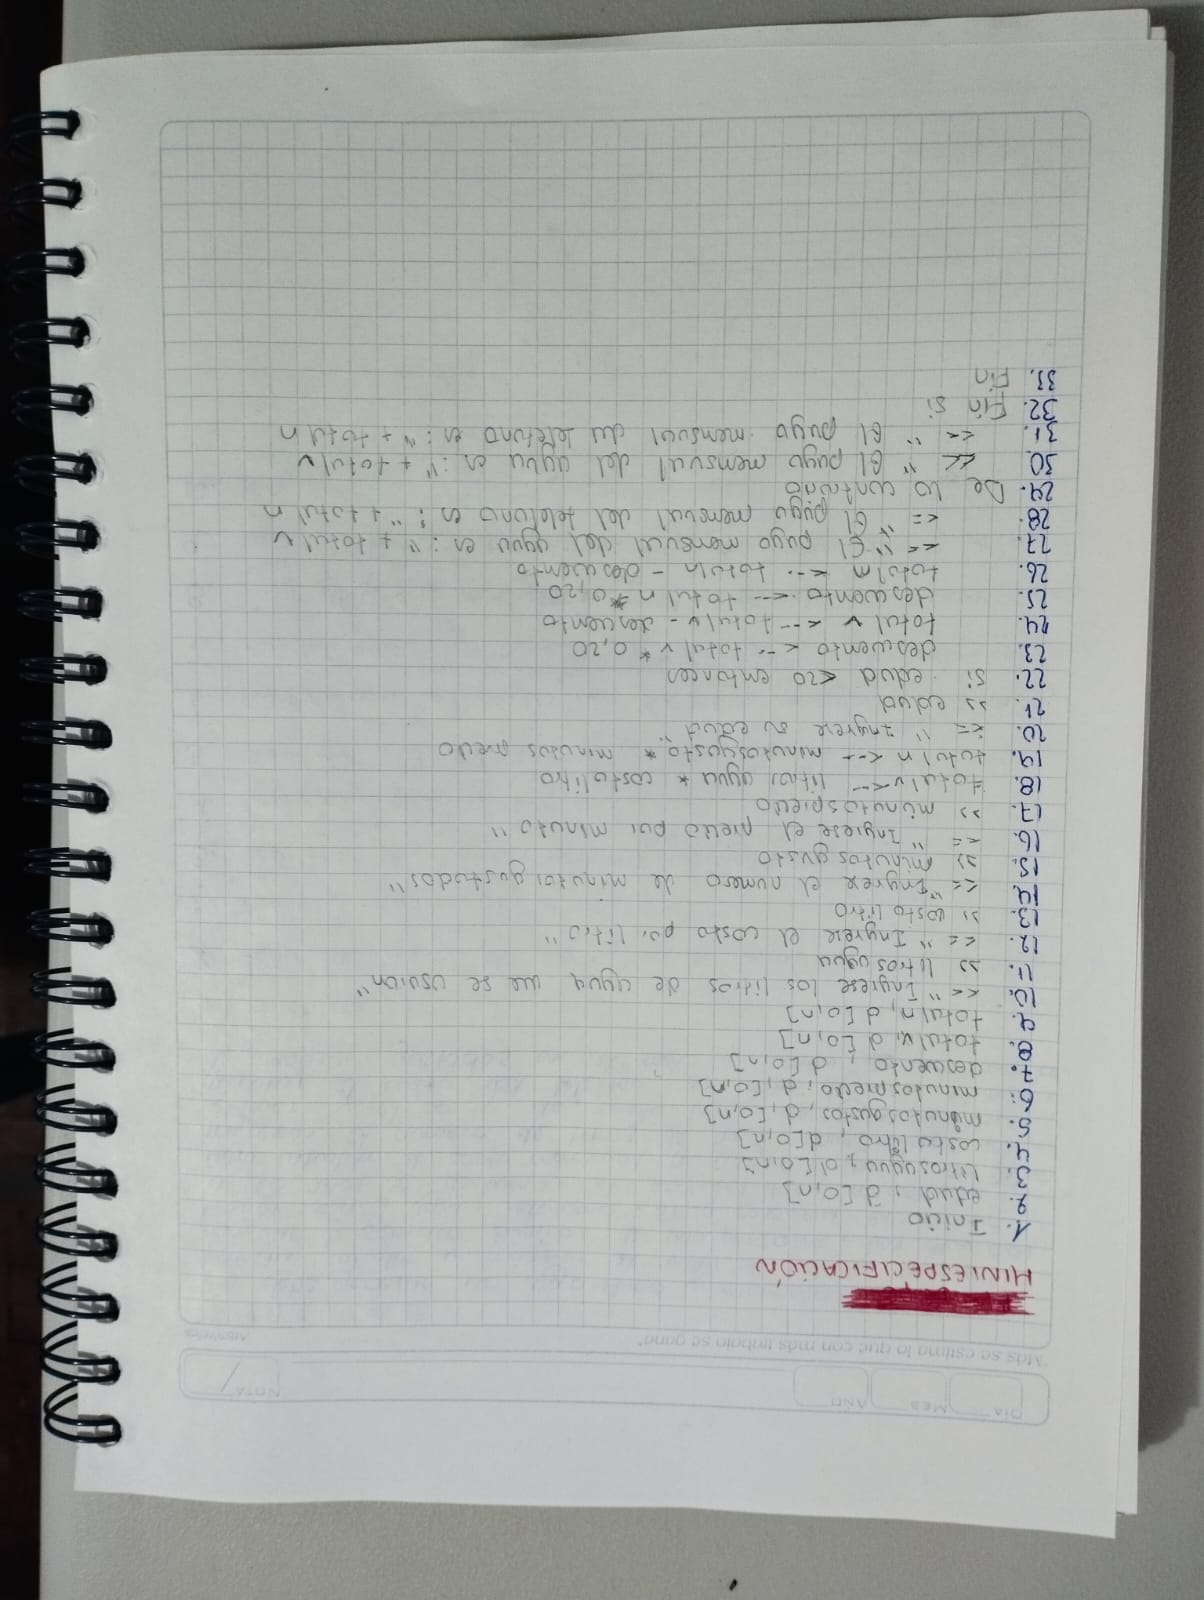 DIA
MES
AÑO
NOTA
"Más se estima lo que con más trabajo se gana"
MINIESPECIFICACIÓN
1. Inicio
2. edad, d[0,n]
3. litrosagua, d[0,n]
4. costolitro, d[0,n]
5. minutosgastos, d, [0,n]
6. minutosprecio, d, [0,n]
7. descuento, d[0,n]
8. totalv, d[0,n]
9. totaln, d[0,n]
10. << "Ingrese los litros de agua que se usaron"
11. >> litrosagua
12. << "Ingrese el costo por litro"
13. >> costolitro
14. << "Ingrese el numero de minutos gastados"
15. >> minutosgasto
16. << "Ingrese el precio por minuto"
17. >> minutosprecio
18. totalv <-- litros agua * costolitro
19. totaln <-- minutosgasto * minutos precio
20. << "Ingrese su edad"
21. >> edad
22. Si edad <20 entonces
23. descuento <-- totalv * 0,20
24. totalv <-- totalv - descuento
25. descuento <-- totaln * 0,20
26. totaln <-- totaln - descuento
27. << "El pago mensual del agua es: "+ totalv
28. << "El pago mensual del telefono es: "+ totaln
29. De lo contrario
30. << "El pago mensual del agua es: "+ totalv
31. << "El pago mensual del telefono es: "+ totaln
32. Fin si
33. Fin